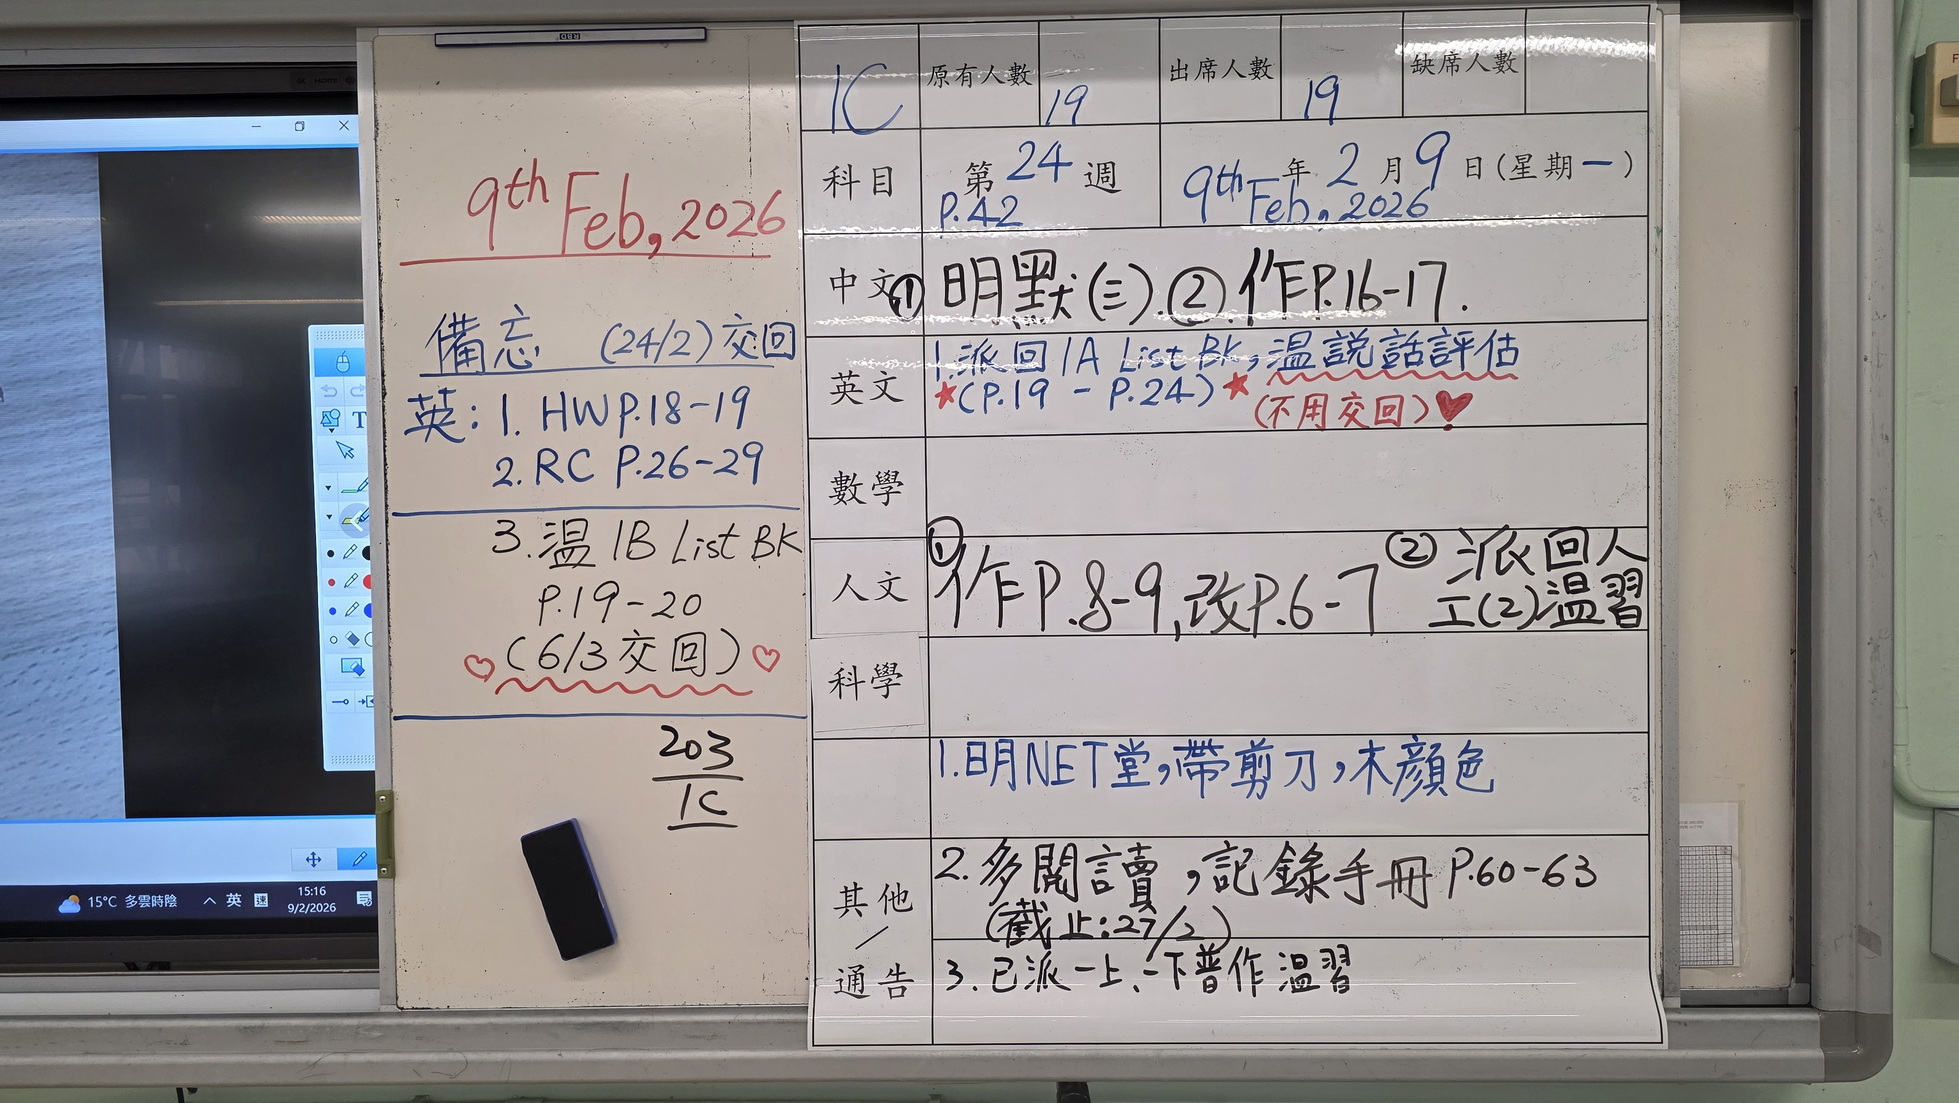 9th Feb, 2026
備忘 (24/2)交回
英: 1. HW P.18-19
2. RC P.26-29
3. 温 1B List BK
P.19-20
(6/3交回)
203
1C
15°C 多雲時陰
英
15:16
9/2/2026
1C 原有人數 19 出席人數 19 缺席人數
科目 第 24 週 年 2 月 9 日(星期一)
P.42 9th Feb, 2026
中文 ① 明默(三) ② 作P.16-17.
英文 1.派回1A List BK, 温說話評估
★(P.19 - P.24)★ (不用交回)♥
數學
人文 ① 作P.8-9,改P.6-7 ② 派回人
工(2)温習
科學
1.明NET堂,帶剪刀,木顏色
其他/通告
2.多閱讀,記錄手冊 P.60-63
(截止:27/2)
3.已派一上、一下普作温習